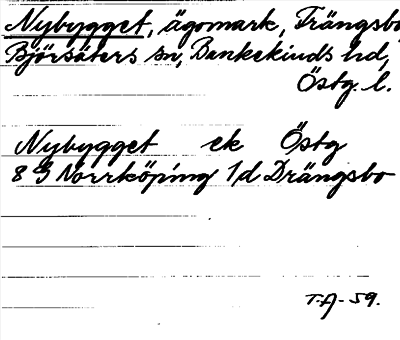 Nybygget, ägomark, Trängsbo
Björsäters sn, Bankekinds hd,
Östg. l.
Nybygget ek Östg
8 G Norrköping 1/d Drängsbo
T.A-59.